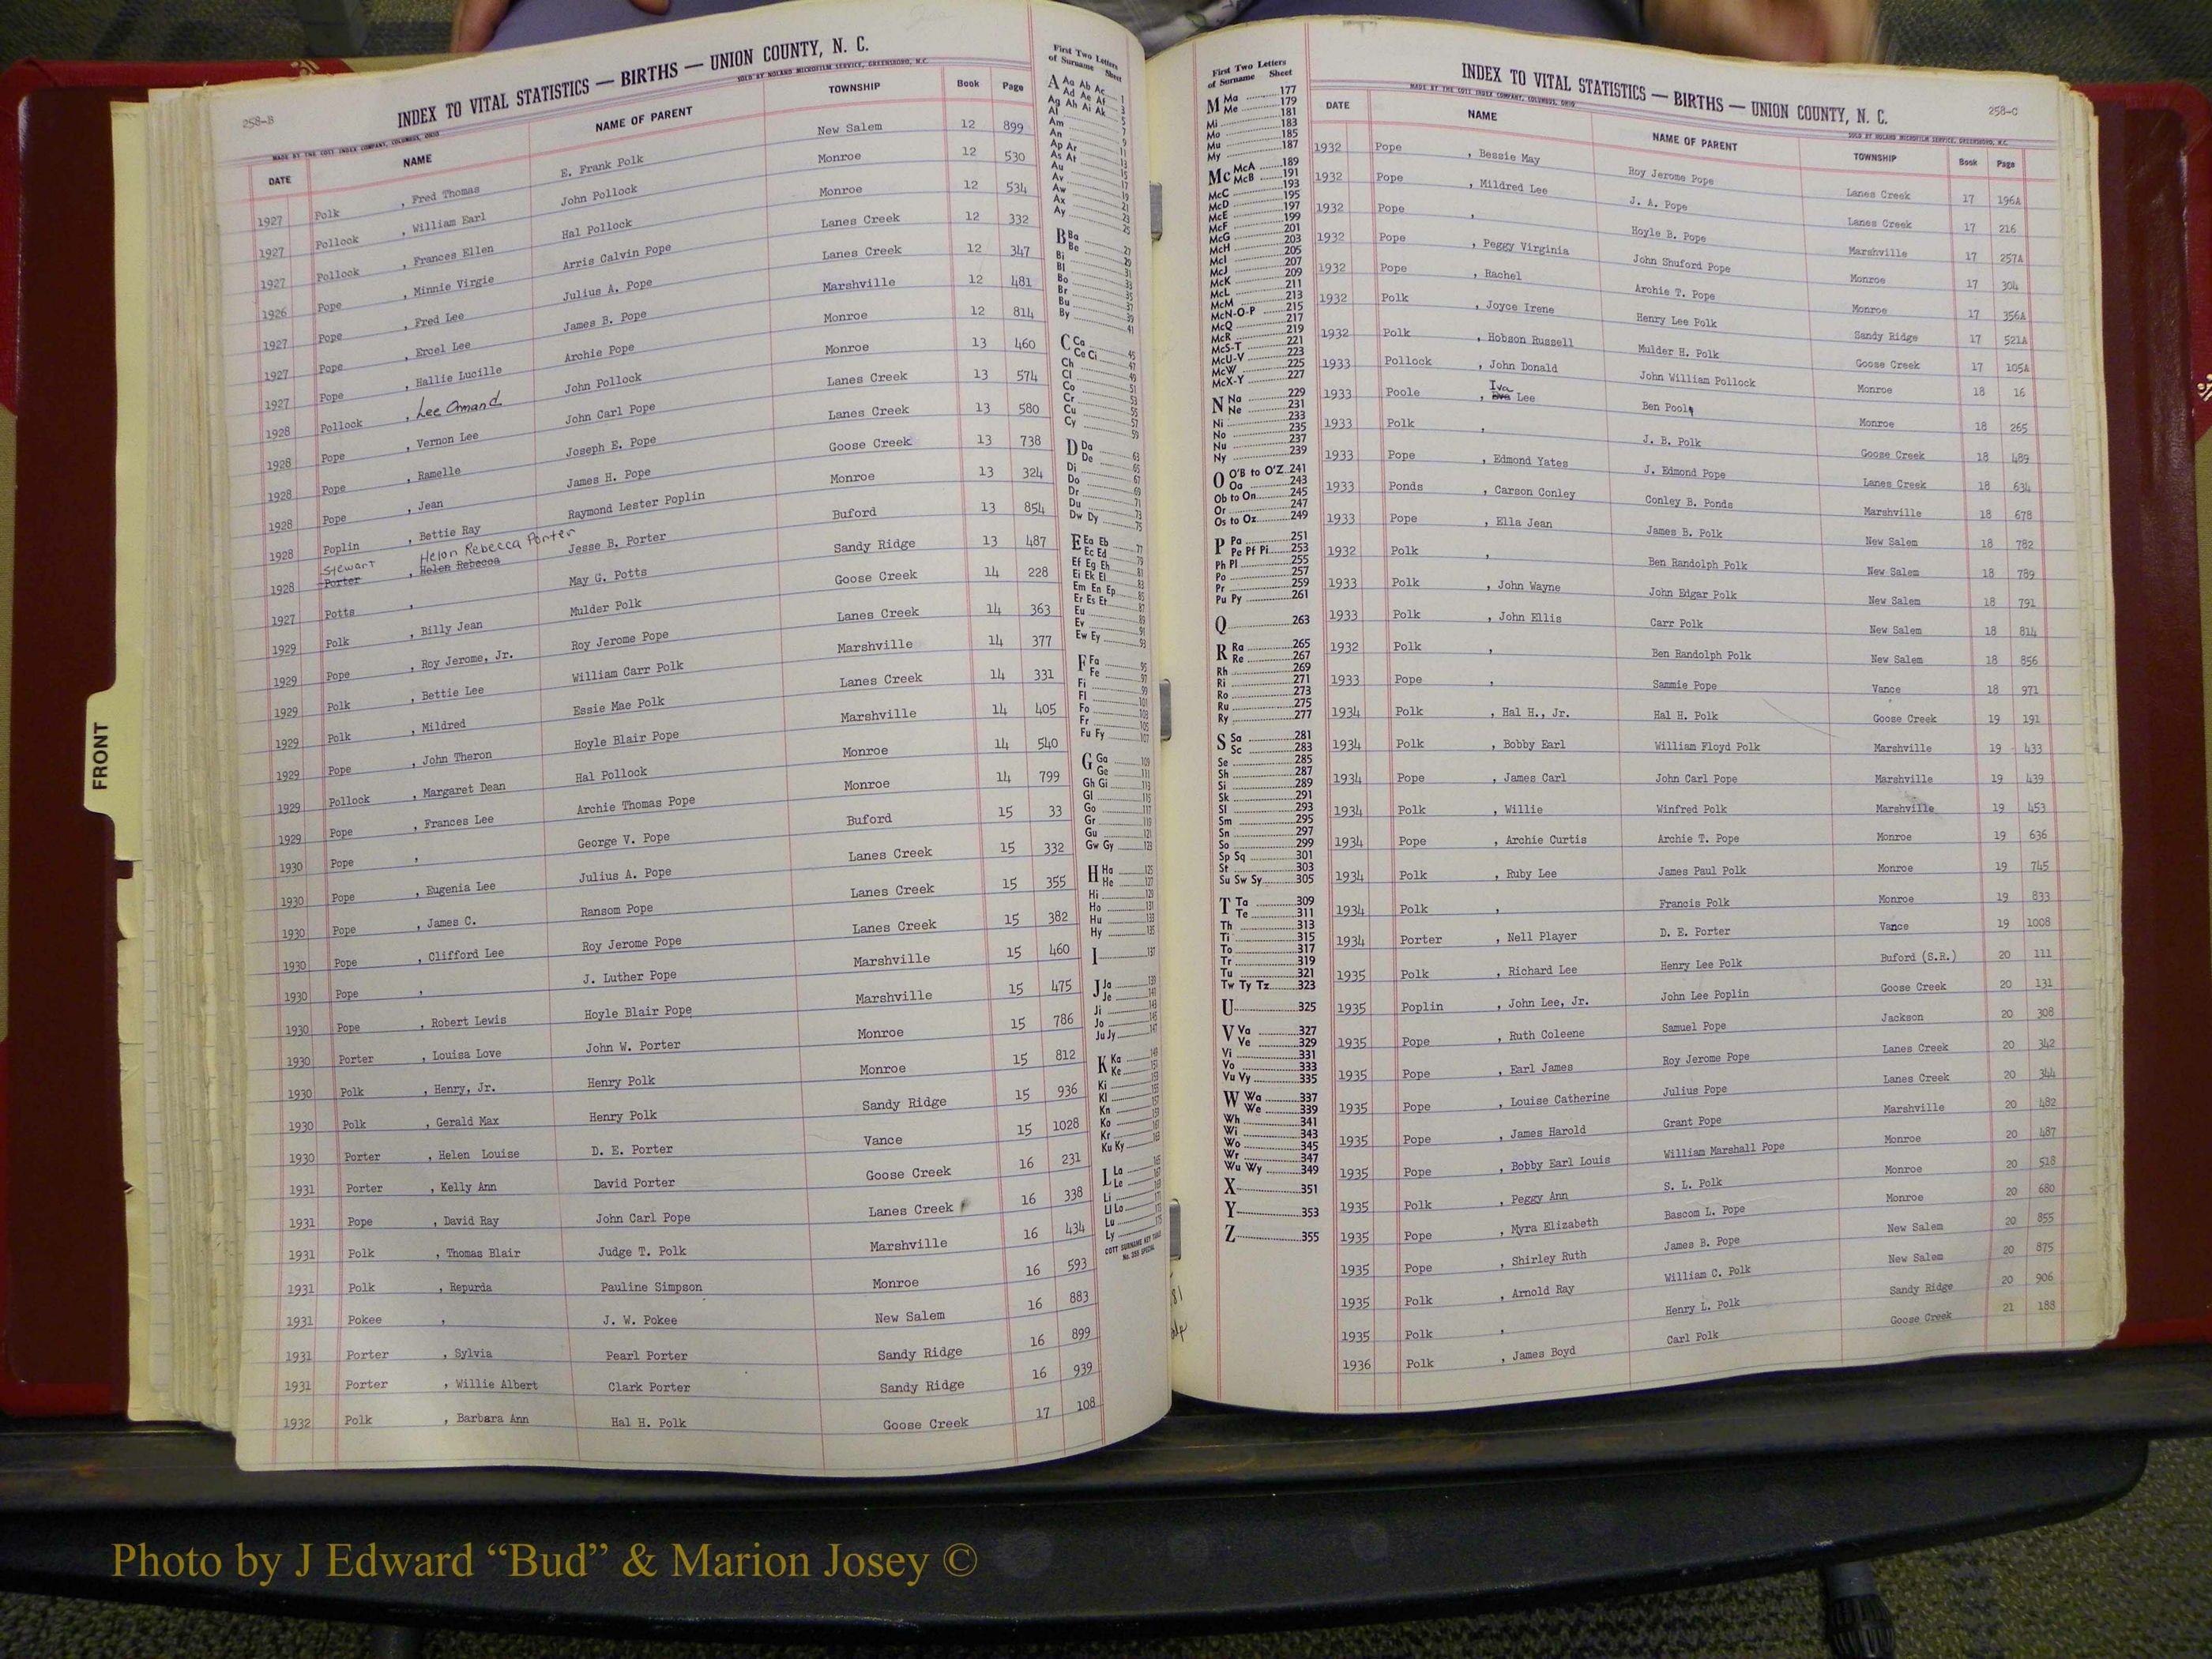 258-B
INDEX TO VITAL STATISTICS — BIRTHS — UNION COUNTY, N. C.
MADE BY THE COTT INDEX COMPANY, COLUMBUS, OHIO SOLD BY NOLAND MICROFILM SERVICE, GREENSBORO, N.C.
DATE NAME NAME OF PARENT TOWNSHIP Book Page
1927 Polk , Fred Thomas E. Frank Polk New Salem 12 899
1927 Pollock , William Earl John Pollock Monroe 12 530
1927 Pollock , Frances Ellen Hal Pollock Monroe 12 534
1926 Pope , Minnie Virgie Arris Calvin Pope Lanes Creek 12 332
1927 Pope , Fred Lee Julius A. Pope Lanes Creek 12 347
1927 Pope , Ercel Lee James B. Pope Marshville 12 481
1927 Pope , Hallie Lucille Archie Pope Monroe 12 814
1928 Pollock , Lee Omand John Pollock Monroe 13 460
1928 Pope , Vernon Lee John Carl Pope Lanes Creek 13 574
1928 Pope , Ramelle Joseph E. Pope Lanes Creek 13 580
1928 Pope , Jean James H. Pope Goose Creek 13 738
1928 Poplin , Bettie Ray Raymond Lester Poplin Monroe 13 324
Stewart Helon Rebecca Porter
1928 Porter , Helen Rebecca Jesse B. Porter Buford 13 854
1927 Potts , May G. Potts Sandy Ridge 13 487
1929 Polk , Billy Jean Mulder Polk Goose Creek 14 228
1929 Pope , Roy Jerome, Jr. Roy Jerome Pope Lanes Creek 14 363
1929 Polk , Bettie Lee William Carr Polk Marshville 14 377
1929 Polk , Mildred Essie Mae Polk Lanes Creek 14 331
1929 Pope , John Theron Hoyle Blair Pope Marshville 14 405
1929 Pollock , Margaret Dean Hal Pollock Monroe 14 540
1929 Pope , Frances Lee Archie Thomas Pope Monroe 14 799
1930 Pope , George V. Pope Buford 15 33
1930 Pope , Eugenia Lee Julius A. Pope Lanes Creek 15 332
1930 Pope , James C. Ransom Pope Lanes Creek 15 355
1930 Pope , Clifford Lee Roy Jerome Pope Lanes Creek 15 382
1930 Pope , J. Luther Pope Marshville 15 460
1930 Pope , Robert Lewis Hoyle Blair Pope Marshville 15 475
1930 Porter , Louisa Love John W. Porter Monroe 15 786
1930 Polk , Henry, Jr. Henry Polk Monroe 15 812
1930 Polk , Gerald Max Henry Polk Sandy Ridge 15 936
1930 Porter , Helen Louise D. E. Porter Vance 15 1028
1931 Porter , Kelly Ann David Porter Goose Creek 16 231
1931 Pope , David Ray John Carl Pope Lanes Creek 16 338
1931 Polk , Thomas Blair Judge T. Polk Marshville 16 434
1931 Polk , Repurda Pauline Simpson Monroe 16 593
1931 Pokee , J. W. Pokee New Salem 16 883
1931 Porter , Sylvia Pearl Porter Sandy Ridge 16 899
1931 Porter , Willie Albert Clark Porter Sandy Ridge 16 939
1932 Polk , Barbara Ann Hal H. Polk Goose Creek 17 108
First Two Letters
of Surname Sheet
A Aa Ab Ac 1
Ad Ae Af 3
Ag Ah Ai Ak 5
Al 7
Am 9
An 11
Ap Ar 13
As At 15
Au 17
Av 19
Aw 21
Ax 23
Ay 25
B Ba 27
Be 29
Bi 31
Bl 33
Bo 35
Br 37
Bu 39
By 41
C Ca 45
Ce Ci 47
Ch 49
Cl 51
Co 53
Cr 55
Cu 57
Cy 59
D Da 63
De 65
Di 67
Do 69
Dr 71
Du 73
Dw Dy 75
E Ea Eb 77
Ec Ed 79
Ef Eg Eh 81
Ei Ek El 83
Em En Ep 85
Er Es Et 87
Eu 89
Ev 91
Ew Ey 93
F Fa 95
Fe 97
Fi 99
Fl 101
Fo 103
Fr 105
Fu Fy 107
G Ga 109
Ge 111
Gh Gi 113
Gl 115
Go 117
Gr 119
Gu 121
Gw Gy 123
H Ha 125
He 127
Hi 129
Ho 131
Hu 133
Hy 135
I 137
J Ja 139
Je 141
Ji 143
Jo 145
Ju Jy 147
K Ka 149
Ke 151
Ki 153
Kl 155
Kn 157
Ko 161
Kr 161
Ku Ky 163
L La 165
Le 167
Li 169
Ll Lo 171
Lu 173
Ly 175
COTT SURNAME KEY TABLE
No. 255 SPECIAL
First Two Letters
of Surname Sheet
M Ma 177
Me 179
Mi 181
Mo 183
Mu 185
My 187
Mc McA 189
McB 191
McC 193
McD 195
McE 197
McF 199
McG 201
McH 203
McI 205
McJ 207
McK 209
McL 211
McM 213
McN-O-P 215
McQ 217
McR 219
McS-T 221
McU-V 223
McW 225
McX-Y 227
N Na 229
Ne 231
Ni 233
No 235
Nu 237
Ny 239
O O'B to O'Z 241
Oa 243
Ob to On 245
Or 247
Os to Oz 249
P Pa 251
Pe Pf Pi 253
Ph Pl 255
Po 257
Pr 259
Pu Py 261
Q 263
R Ra 265
Re 267
Rh 269
Ri 271
Ro 273
Ru 275
Ry 277
S Sa 281
Sc 283
Se 285
Sh 287
Si 289
Sk 291
Sl 293
Sm 295
Sn 297
So 299
Sp Sq 301
St 303
Su Sw Sy 305
T Ta 309
Te 311
Th 313
Ti 315
To 317
Tr 319
Tu 321
Tw Ty Tz 323
U 325
V Va 327
Ve 329
Vi 331
Vo 333
Vu Vy 335
W Wa 337
We 339
Wh 341
Wi 343
Wo 345
Wr 347
Wu Wy 349
X 351
Y 353
Z 355
258-C
INDEX TO VITAL STATISTICS — BIRTHS — UNION COUNTY, N. C.
MADE BY THE COTT INDEX COMPANY, COLUMBUS, OHIO SOLD BY NOLAND MICROFILM SERVICE, GREENSBORO, N.C.
DATE NAME NAME OF PARENT TOWNSHIP Book Page
1932 Pope , Bessie May Roy Jerome Pope Lanes Creek 17 196A
1932 Pope , Mildred Lee J. A. Pope Lanes Creek 17 216
1932 Pope , Hoyle B. Pope Marshville 17 257A
1932 Pope , Peggy Virginia John Shuford Pope Monroe 17 304
1932 Pope , Rachel Archie T. Pope Monroe 17 356A
1932 Polk , Joyce Irene Henry Lee Polk Sandy Ridge 17 521A
1932 Polk , Hobson Russell Mulder H. Polk Goose Creek 17 105A
1933 Pollock , John Donald John William Pollock Monroe 18 16
Iva
1933 Poole , Eva Lee Ben Poole Monroe 18 265
1933 Polk , J. B. Polk Goose Creek 18 489
1933 Pope , Edmond Yates J. Edmond Pope Lanes Creek 18 634
1933 Ponds , Carson Conley Conley B. Ponds Marshville 18 678
1933 Pope , Ella Jean James B. Polk New Salem 18 782
1932 Polk , Ben Randolph Polk New Salem 18 789
1933 Polk , John Wayne John Edgar Polk New Salem 18 791
1933 Polk , John Ellis Carr Polk New Salem 18 814
1932 Polk , Ben Randolph Polk New Salem 18 856
1933 Pope , Sammie Pope Vance 18 971
1934 Polk , Hal H., Jr. Hal H. Polk Goose Creek 19 191
1934 Polk , Bobby Earl William Floyd Polk Marshville 19 433
1934 Pope , James Carl John Carl Pope Marshville 19 439
1934 Polk , Willie Winfred Polk Marshville 19 453
1934 Pope , Archie Curtis Archie T. Pope Monroe 19 636
1934 Polk , Ruby Lee James Paul Polk Monroe 19 745
1934 Polk , Francis Polk Monroe 19 833
1934 Porter , Nell Player D. E. Porter Vance 19 1008
1935 Polk , Richard Lee Henry Lee Polk Buford (S.R.) 20 111
1935 Poplin , John Lee, Jr. John Lee Poplin Goose Creek 20 131
1935 Pope , Ruth Coleene Samuel Pope Jackson 20 308
1935 Pope , Earl James Roy Jerome Pope Lanes Creek 20 342
1935 Pope , Louise Catherine Julius Pope Lanes Creek 20 344
1935 Pope , James Harold Grant Pope Marshville 20 482
1935 Pope , Bobby Earl Louis William Marshall Pope Monroe 20 487
1935 Polk , Peggy Ann S. L. Polk Monroe 20 518
1935 Pope , Myra Elizabeth Bascom L. Pope Monroe 20 680
1935 Pope , Shirley Ruth James B. Pope New Salem 20 855
1935 Polk , Arnold Ray William C. Polk New Salem 20 875
1935 Polk , Henry L. Polk Sandy Ridge 20 906
1936 Polk , James Boyd Carl Polk Goose Creek 21 188
FRONT
Photo by J Edward “Bud” & Marion Josey ©